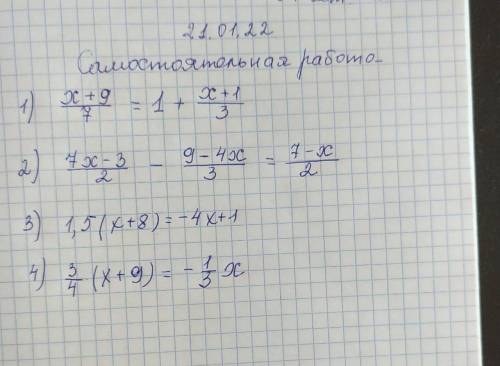 21.01.22
Самостоятельная работа
1) (x+9)/7 = 1 + (x+1)/3
2) (7x-3)/2 - (9-4x)/3 = (7-x)/2
3) 1,5(x+8)=-4x+1
4) 3/4 (x+9) = -1/3 x